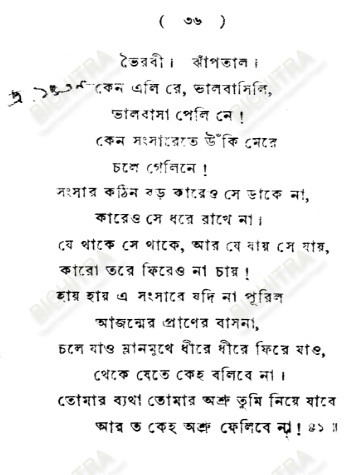 ( ৩৬ )
ভৈরবী। ঝাঁপতাল।
কেন এলি রে, ভালবাসিলি,
ভালবাসা পেলি নে!
কেন সংসারেতে উঁকি মেরে
চলে গেলিনে!
সংসার কঠিন বড় কারেও সে ডাকে না,
কারেও সে ধরে রাখে না।
যে থাকে সে থাকে, আর যে যায় সে যায়,
কারো তরে ফিরেও না চায়!
হায় হায় এ সংসারে যদি না পূরিল
আজন্মের প্রাণের বাসনা,
চলে যাও ম্লানমুখে ধীরে ধীরে ফিরে যাও,
থেকে যেতে কেহ বলিবে না।
তোমার ব্যথা তোমার অশ্রু তুমি নিয়ে যাবে
আর ত কেহ অশ্রু ফেলিবে না! ৪১ ॥